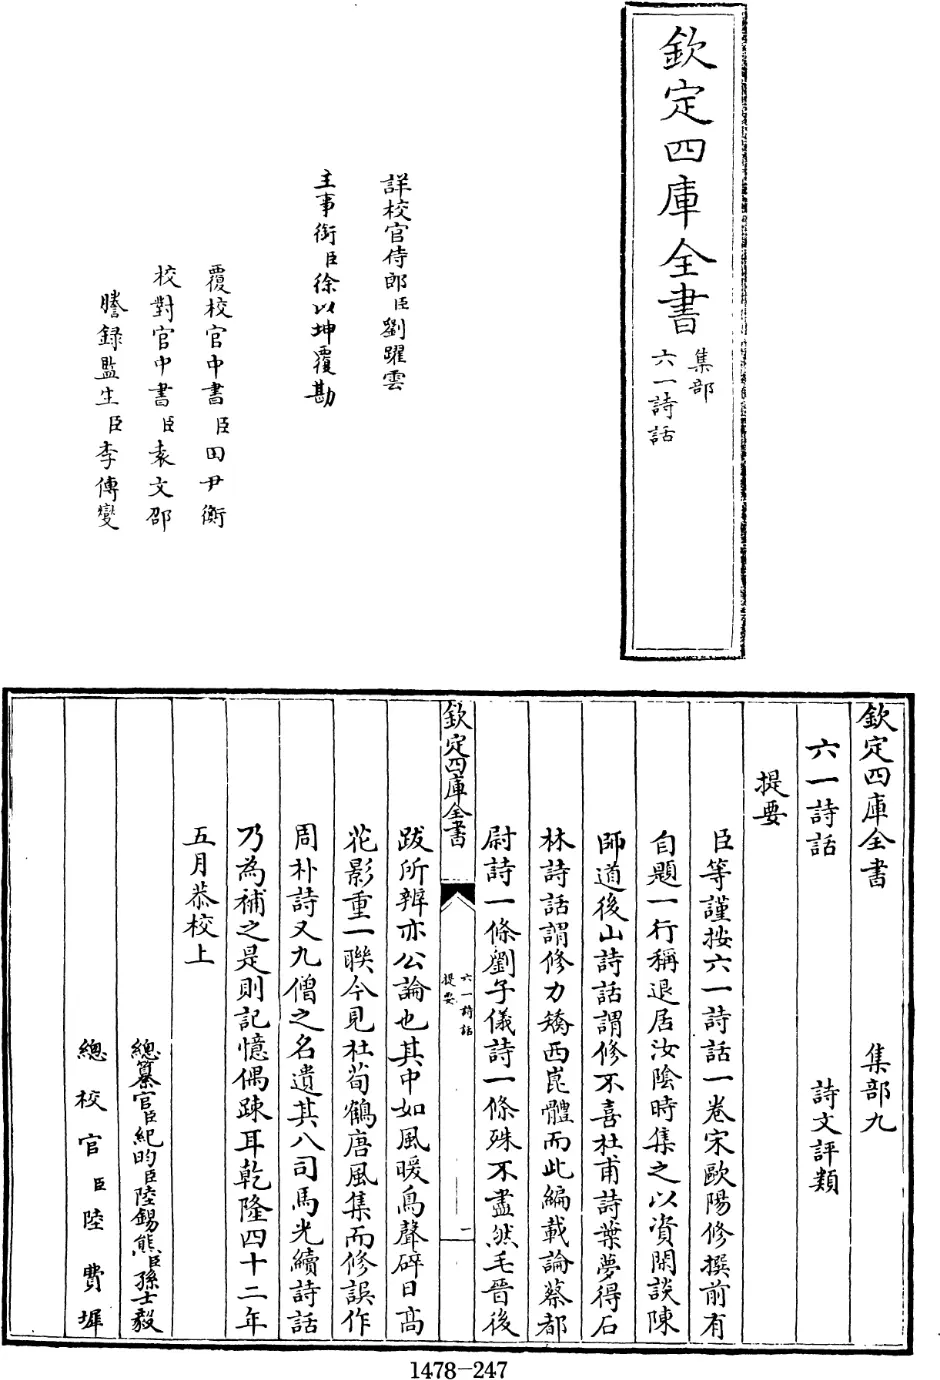 欽定四庫全書
集部
六一詩話
詳校官侍郎臣劉躍雲
主事銜臣徐以坤覆勘
覆校官中書臣田尹衡
校對官中書臣袁文邵
謄錄監生臣李傳燮
欽定四庫全書 集部九
六一詩話 詩文評類
提要
臣等謹按六一詩話一卷宋歐陽修撰前有
自題一行稱退居汝陰時集之以資閑談陳
師道後山詩話謂修不喜杜甫詩葉夢得石
林詩話謂修力矯西崑體而此編載論蔡都
尉詩一條劉子儀詩一條殊不盡然毛晉後
欽定四庫全書
六一詩話
提要
一
跋所辨亦公論也其中如風暖鳥聲碎日高
花影重一聯今見杜荀鶴唐風集而修誤作
周朴詩又九僧之名遺其八司馬光續詩話
乃為補之是則記憶偶疎耳乾隆四十二年
五月恭校上
總纂官臣紀昀臣陸錫熊臣孫士毅
總校官臣陸費墀
1478-247